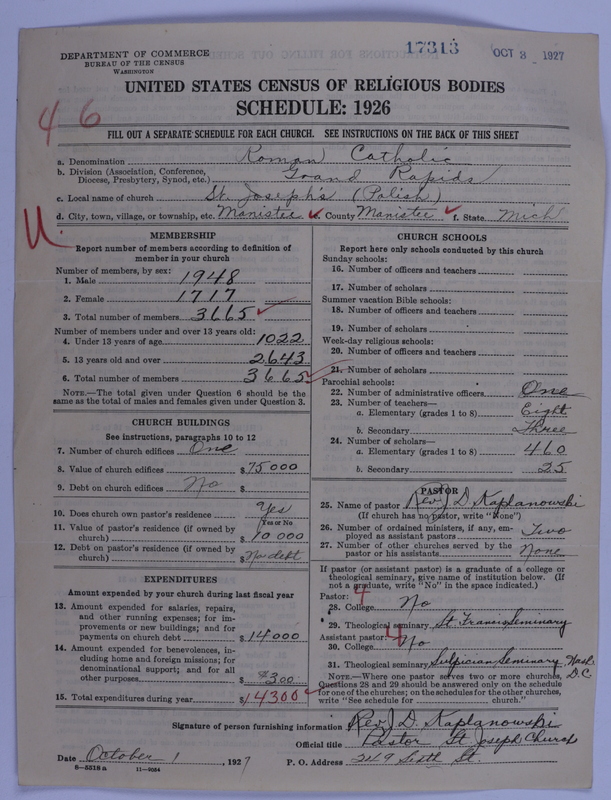 17313
OCT 3 1927
DEPARTMENT OF COMMERCE
BUREAU OF THE CENSUS
WASHINGTON
UNITED STATES CENSUS OF RELIGIOUS BODIES
SCHEDULE: 1926
4 6
FILL OUT A SEPARATE SCHEDULE FOR EACH CHURCH. SEE INSTRUCTIONS ON THE BACK OF THIS SHEET
a. Denomination Roman Catholic
b. Division (Association, Conference, Diocese, Presbytery, Synod, etc.) Grand Rapids
c. Local name of church St. Joseph's (Polish)
d. City, town, village, or township, etc. Manistee County Manistee f. State Mich
MEMBERSHIP
Report number of members according to definition of
member in your church
Number of members, by sex:
1. Male 1948
2. Female 1717
3. Total number of members 3665
Number of members under and over 13 years old:
4. Under 13 years of age 1022
5. 13 years old and over 2643
6. Total number of members 3665
NOTE.—The total given under Question 6 should be the
same as the total of males and females given under Question 3.
CHURCH BUILDINGS
See instructions, paragraphs 10 to 12
7. Number of church edifices One
8. Value of church edifices $75000
9. Debt on church edifices No $
10. Does church own pastor's residence Yes
Yes or No
11. Value of pastor's residence (if owned by
church) $10000
12. Debt on pastor's residence (if owned by
church) $No debt
EXPENDITURES
Amount expended by your church during last fiscal year
13. Amount expended for salaries, repairs,
and other running expenses; for im-
provements or new buildings; and for
payments on church debt $14000
14. Amount expended for benevolences, in-
cluding home and foreign missions; for
denominational support; and for all
other purposes $300
15. Total expenditures during year $14300
CHURCH SCHOOLS
Report here only schools conducted by this church
Sunday schools:
16. Number of officers and teachers
17. Number of scholars
Summer vacation Bible schools:
18. Number of officers and teachers
19. Number of scholars
Week-day religious schools:
20. Number of officers and teachers
21. Number of scholars
Parochial schools:
22. Number of administrative officers One
23. Number of teachers—
a. Elementary (grades 1 to 8) Eight
b. Secondary Three
24. Number of scholars—
a. Elementary (grades 1 to 8) 460
b. Secondary 25
PASTOR
25. Name of pastor Rev J D. Kaplanowski
(If church has no pastor, write "None")
26. Number of ordained ministers, if any, em-
ployed as assistant pastors Two
27. Number of other churches served by the
pastor or his assistants None
If pastor (or assistant pastor) is a graduate of a college or
theological seminary, give name of institution below. (If
not a graduate, write "No" in the space indicated.)
Pastor: 4
28. College No
29. Theological seminary St Francis Seminary
Assistant pastor: 4
30. College No
31. Theological seminary Sulpician Seminary Wash. D.C
NOTE.—Where one pastor serves two or more churches,
Questions 28 and 29 should be answered only on the schedule
for one of the churches; on the schedules for the other churches,
write "See schedule for church."
Signature of person furnishing information Rev J D. Kaplanowski
Official title Pastor St Joseph Church
Date October 1, 1927 P. O. Address 249 Sixth St.
8—5518 a 11—9054